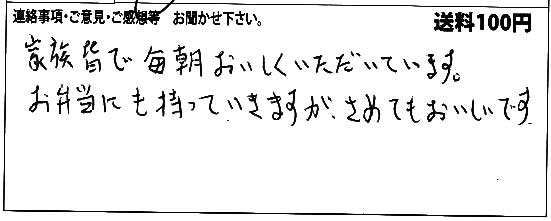 連絡事項・ご意見・ご感想等 お聞かせ下さい。 送料100円
家族皆で毎朝おいしくいただいています。
お弁当にも持っていきますが、さめてもおいしいです